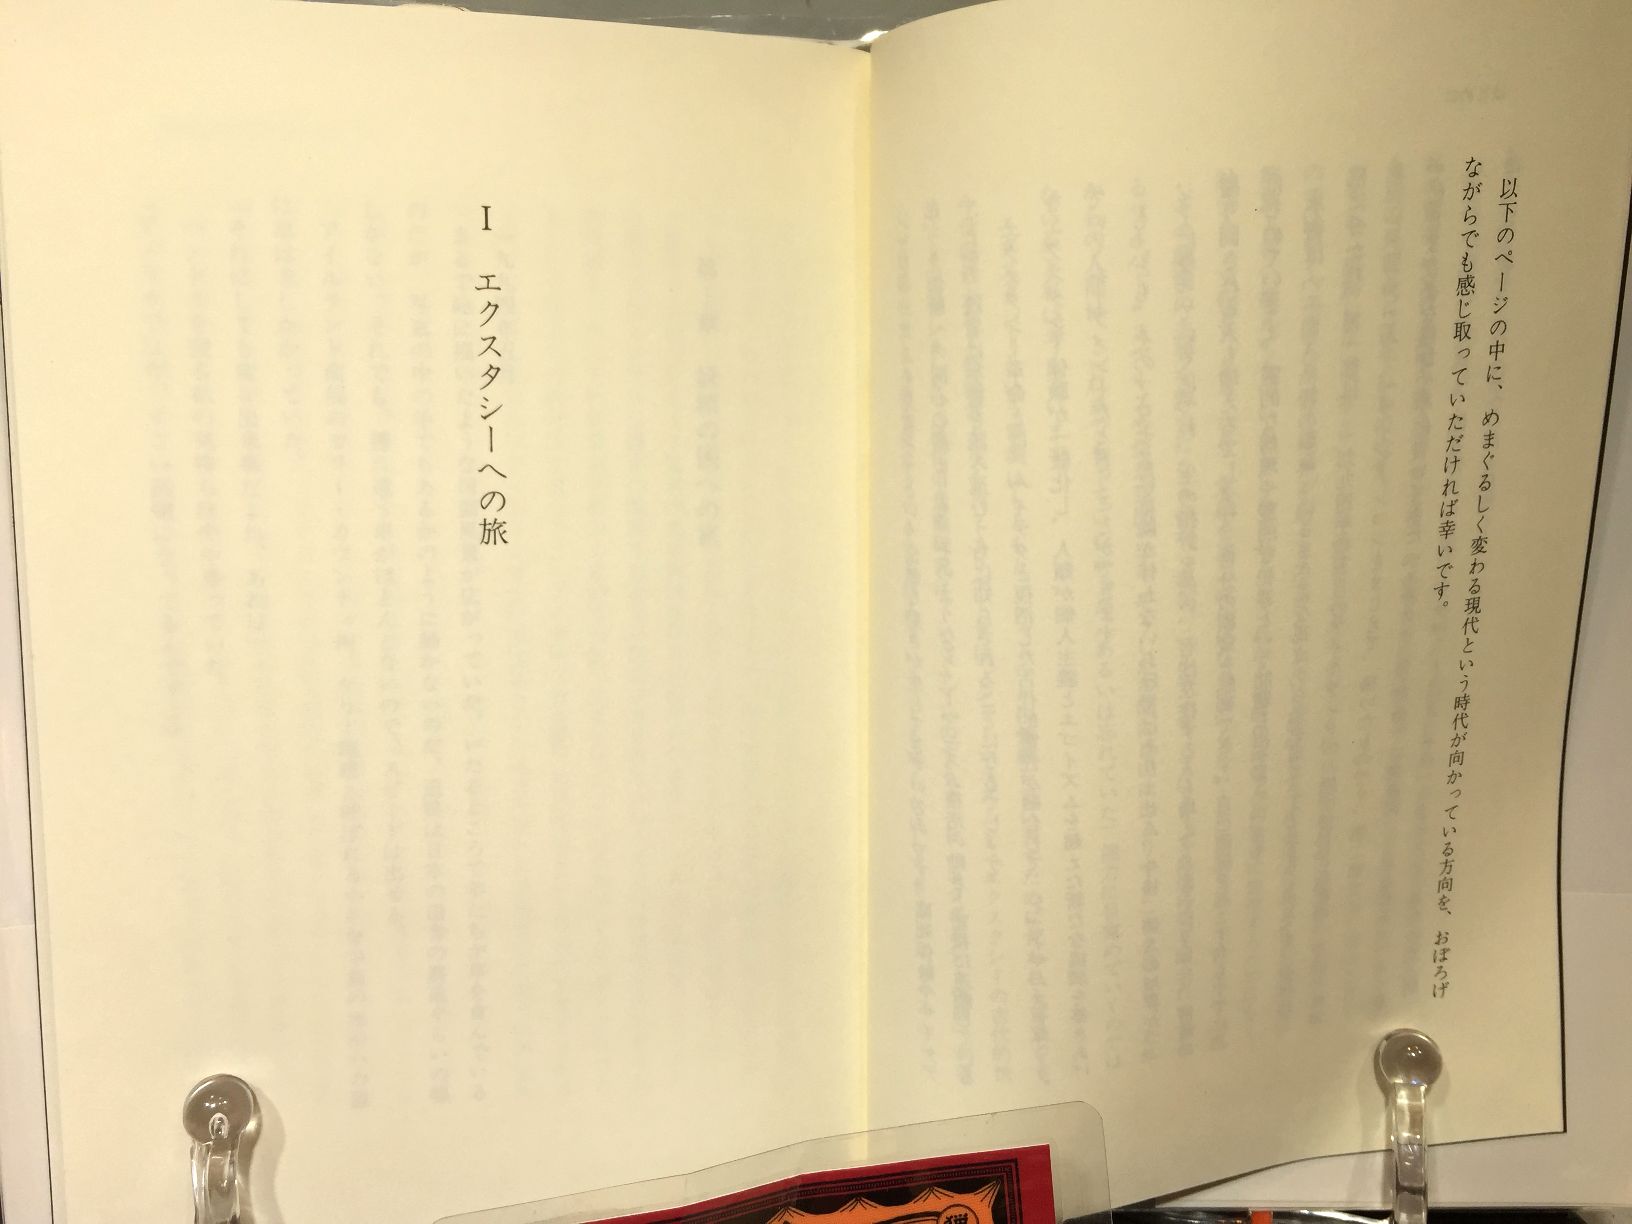 以下のページの中に、めまぐるしく変わる現代という時代が向かっている方向を、おぼろげ
ながらでも感じ取っていただければ幸いです。
I エクスタシーへの旅